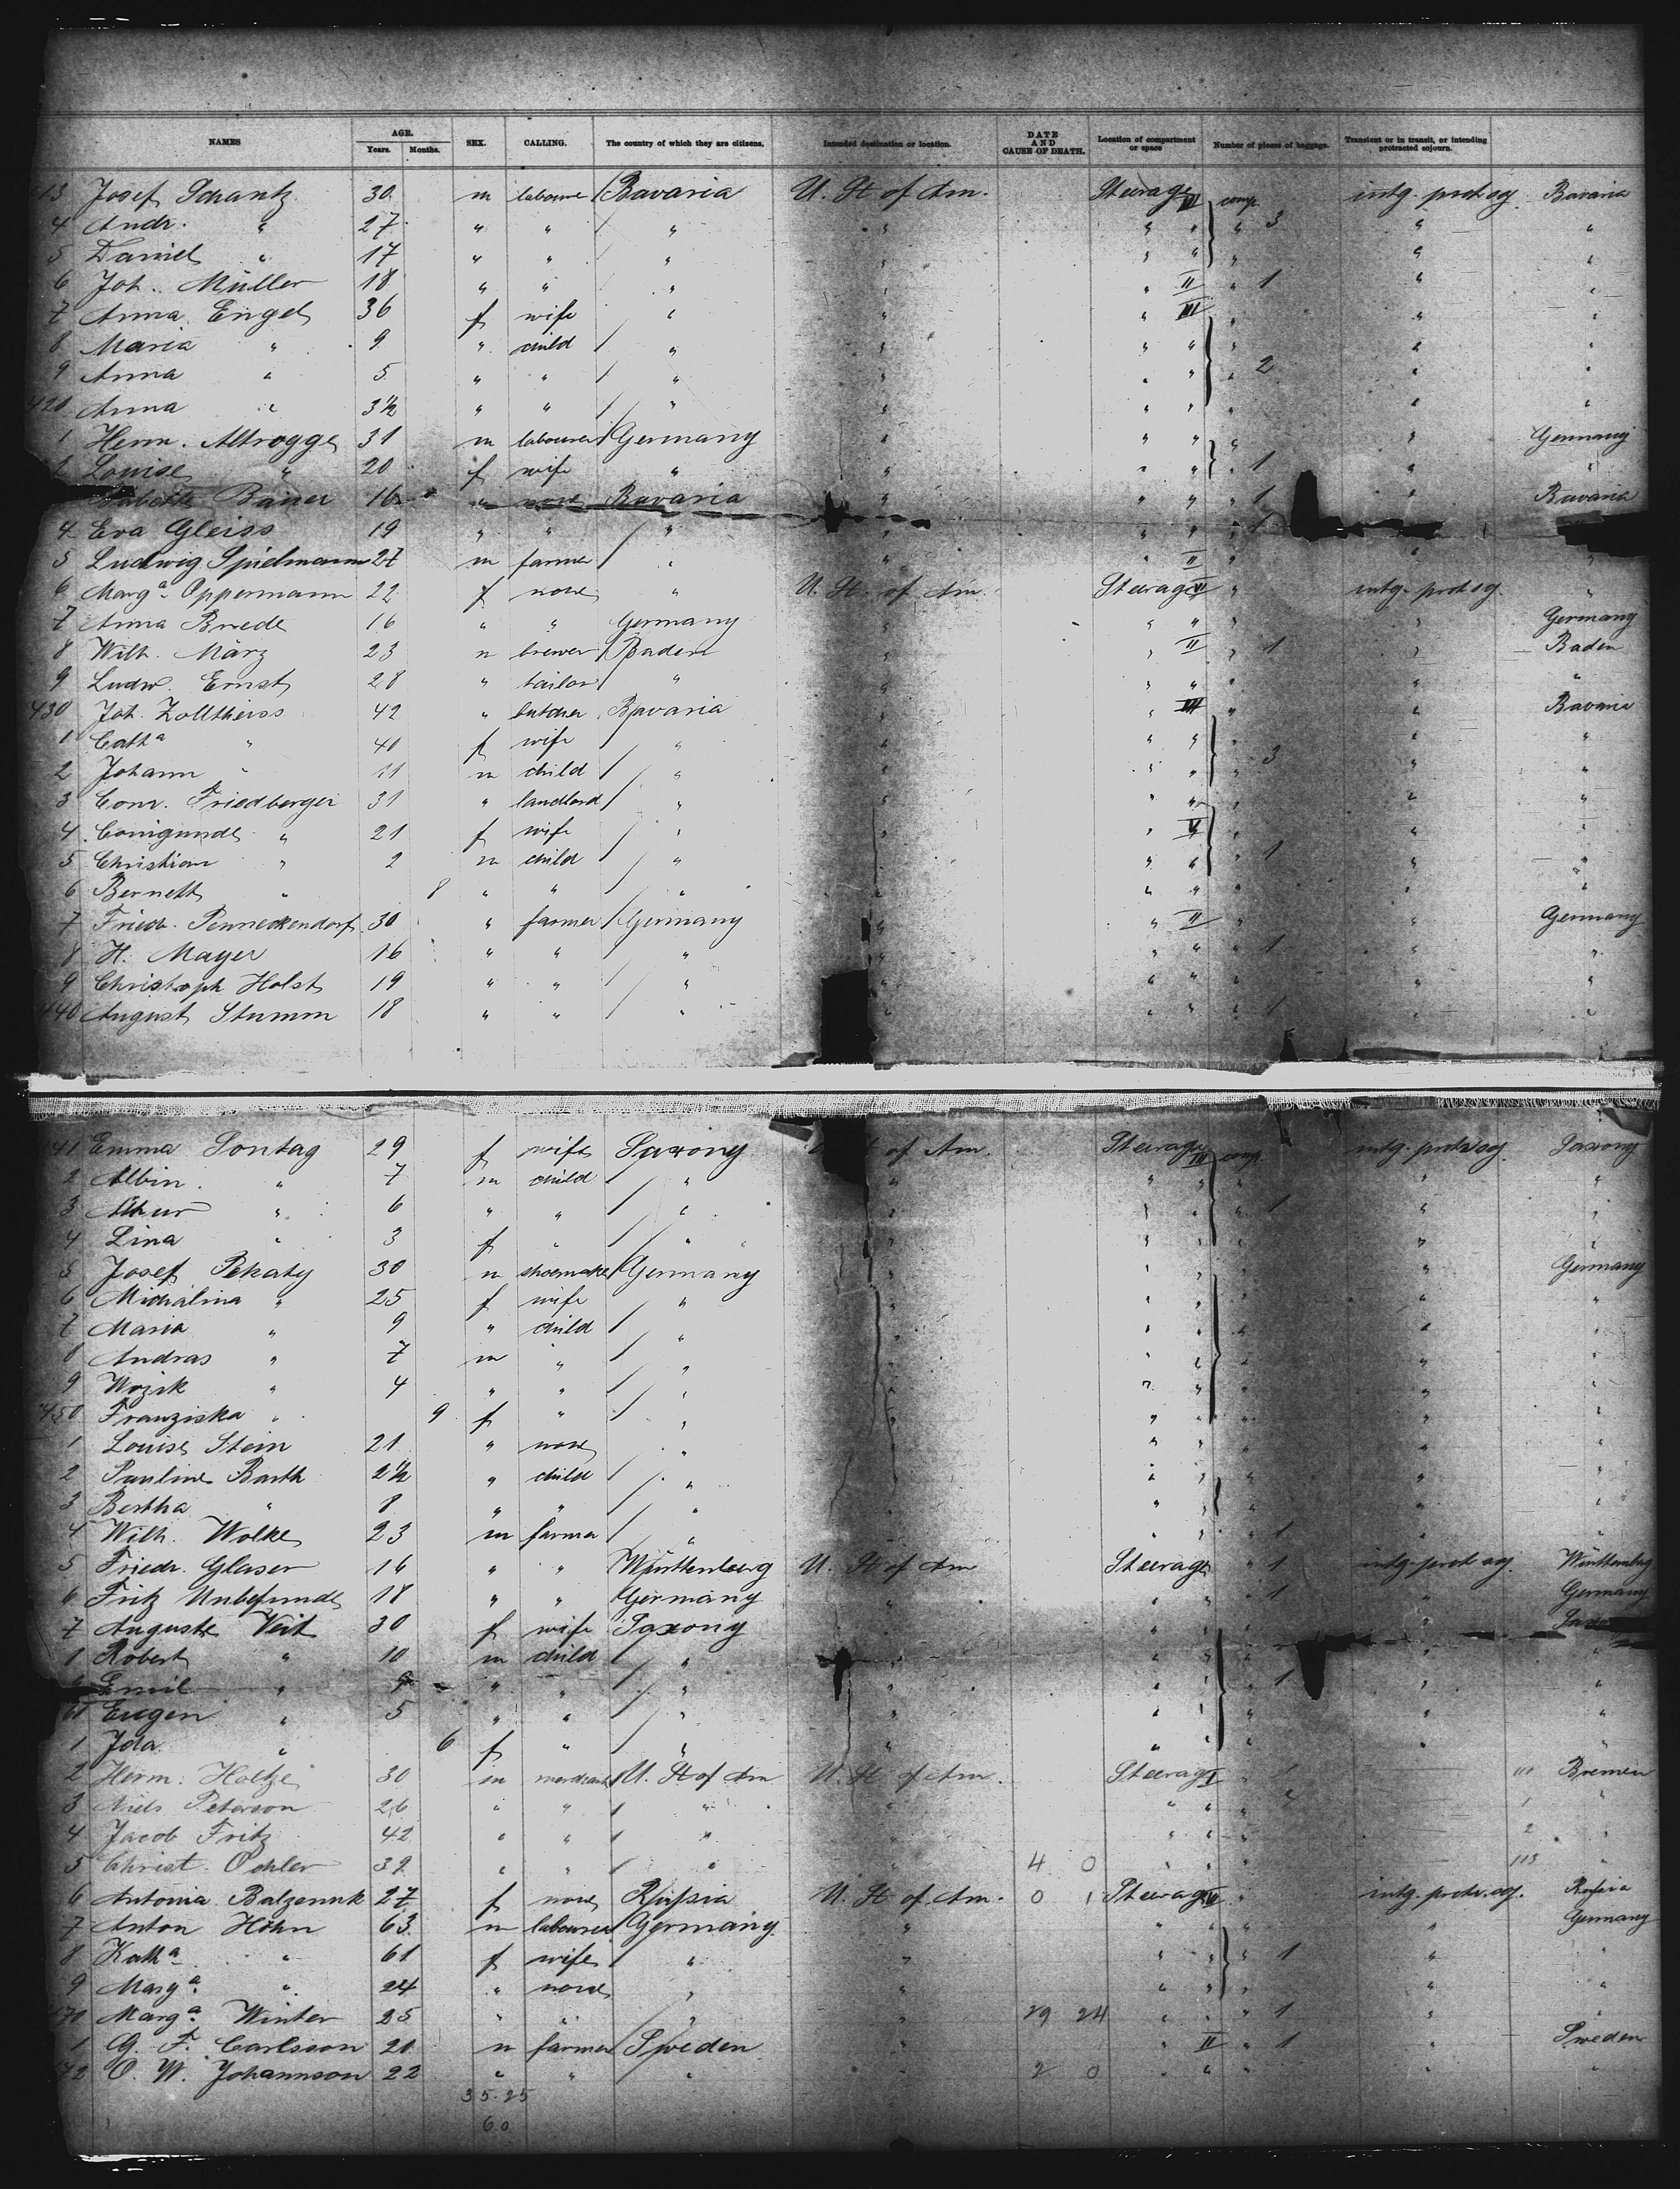 NAMES AGE. Years. Months. SEX. CALLING. The country of which they are citizens. Intended destination or location. DATE AND CAUSE OF DEATH. Location of compartment or space Number of pieces of baggage. Transient or in transit, or intending protracted sojourn.
413 Josef Schantz 30 m laboure Bavaria U. St of Am. Steerage III comp. intg. prot sog Bavaria
4 Andr. " 27 " " " " " " " 3 " "
5 Daniel " 17 " " " " " " " " "
6 Joh. Müller 18 " " " " " II " 1 " "
7 Anna Engel 36 f wife " " " III " " "
8 Maria " 9 " child " " " " " " "
9 Anna " 5 " " " " " " " 2 " "
420 Anna " 3½ " " " " " " " "
1 Herm. Altrogge 31 m labourer Germany " " " " " Germany
2 Louise " 20 f wife " " " " " 1 " "
Babette Bauer 16 " none Bavaria " " " " 1 " Bavaria
4 Eva Gleiss 19 " " " " " " " 1
5 Ludwig Spielmann 27 m farmer " " " II " " "
6 Marga. Oppermann 22 f none " U. St. of Am. Steerage " intg. prot sg. "
7 Anna Brede 16 " " Germany " " " " " Germany
8 Wilh. März 23 m brewer Baden " " II " 1 " Baden
9 Ludw. Ernst 28 " tailor " " " " " " "
430 Joh. Zolltheiss 42 " butcher Bavaria " " III " " Bavaria
1 Catha " 40 f wife " " " " " " "
2 Johann " 11 m child " " " " " 3 " "
3 Conr. Friedberger 31 " landlord " " " " " " "
4 Conigunde " 21 f wife " " " " " "
5 Christian " 2 m child " " " " " 1 " "
6 Bernett " 8 " " " " " " " " "
7 Friedr. Penneckendorf 30 " farmer Germany " " II " " Germany
8 H. Mayer 16 " " " " " " " 1 " "
9 Christoph Holst 19 " " " " " " " " "
440 August Stumm 18 " " " " " " " 1 " "
441 Emma Sontag 29 f wife Saxony of Am. Steerage III comp. intg. prot sog Saxony
2 Albin " 7 m child " " " " " " "
3 Athur " 6 " " " " " " " 1 " "
4 Lina " 3 f " " " " " " " "
5 Josef Pekaty 30 m shoemaker Germany " " " " Germany
6 Michalina " 25 f wife " " " " " "
7 Maria " 9 " child " " " " " " "
8 Andras " 7 m " " " " " " " "
9 Wozik " 4 " " " " " " " " "
450 Franziska " 9 f " " " " " " " "
1 Louise Stein 21 " none " " " " " "
2 Pauline Barth 2½ " child " " " " " " "
3 Bertha " 8 " " " " " " " " "
4 Wilh. Wolke 23 m farmer " " " " " 1 " "
5 Friedr. Glaser 16 " " Württenberg U. St of Am Steerage " 1 intg. prot sog. Württemberg
6 Fritz Unbefunde 18 " " Germany " " " " 1 " Germany
7 Auguste Veit 30 f wife Saxony " " " " "
8 Robert " 10 m child " " " " " "
Emil " 9 " " " " " " " 1 " "
60 Eugen " 5 " " " " " " " "
1 Ida " 6 f " " " " " " "
2 Herm. Holtze 30 m merchant U. St of Am U. St of Am. Steerage I " 1 Bremen
3 Niels Peterson 26 " " " " " " " 1 "
4 Jacob Fritz 42 " " " " " " 2 "
5 Christ. Oehler 39 " " " " 4 0 " " " 113 "
6 Antonia Balzenuk 27 f none Russia U. St of Am. 0 1 Steerage " intg. prot. sog. Russia
7 Anton Höhn 63 m labourer Germany " " " " " Germany
8 Katha " 61 f wife " " " " " 1 " "
9 Marga. " 24 " none " " " " " "
470 Marga Winter 25 " " " " 29 24 " " " 1 " "
1 G. F. Carlsson 20 m farmer Sweden " " II " 1 " Sweden
72 O. W. Johannson 22 " " " " 2 0 " " " " "
35.25
60